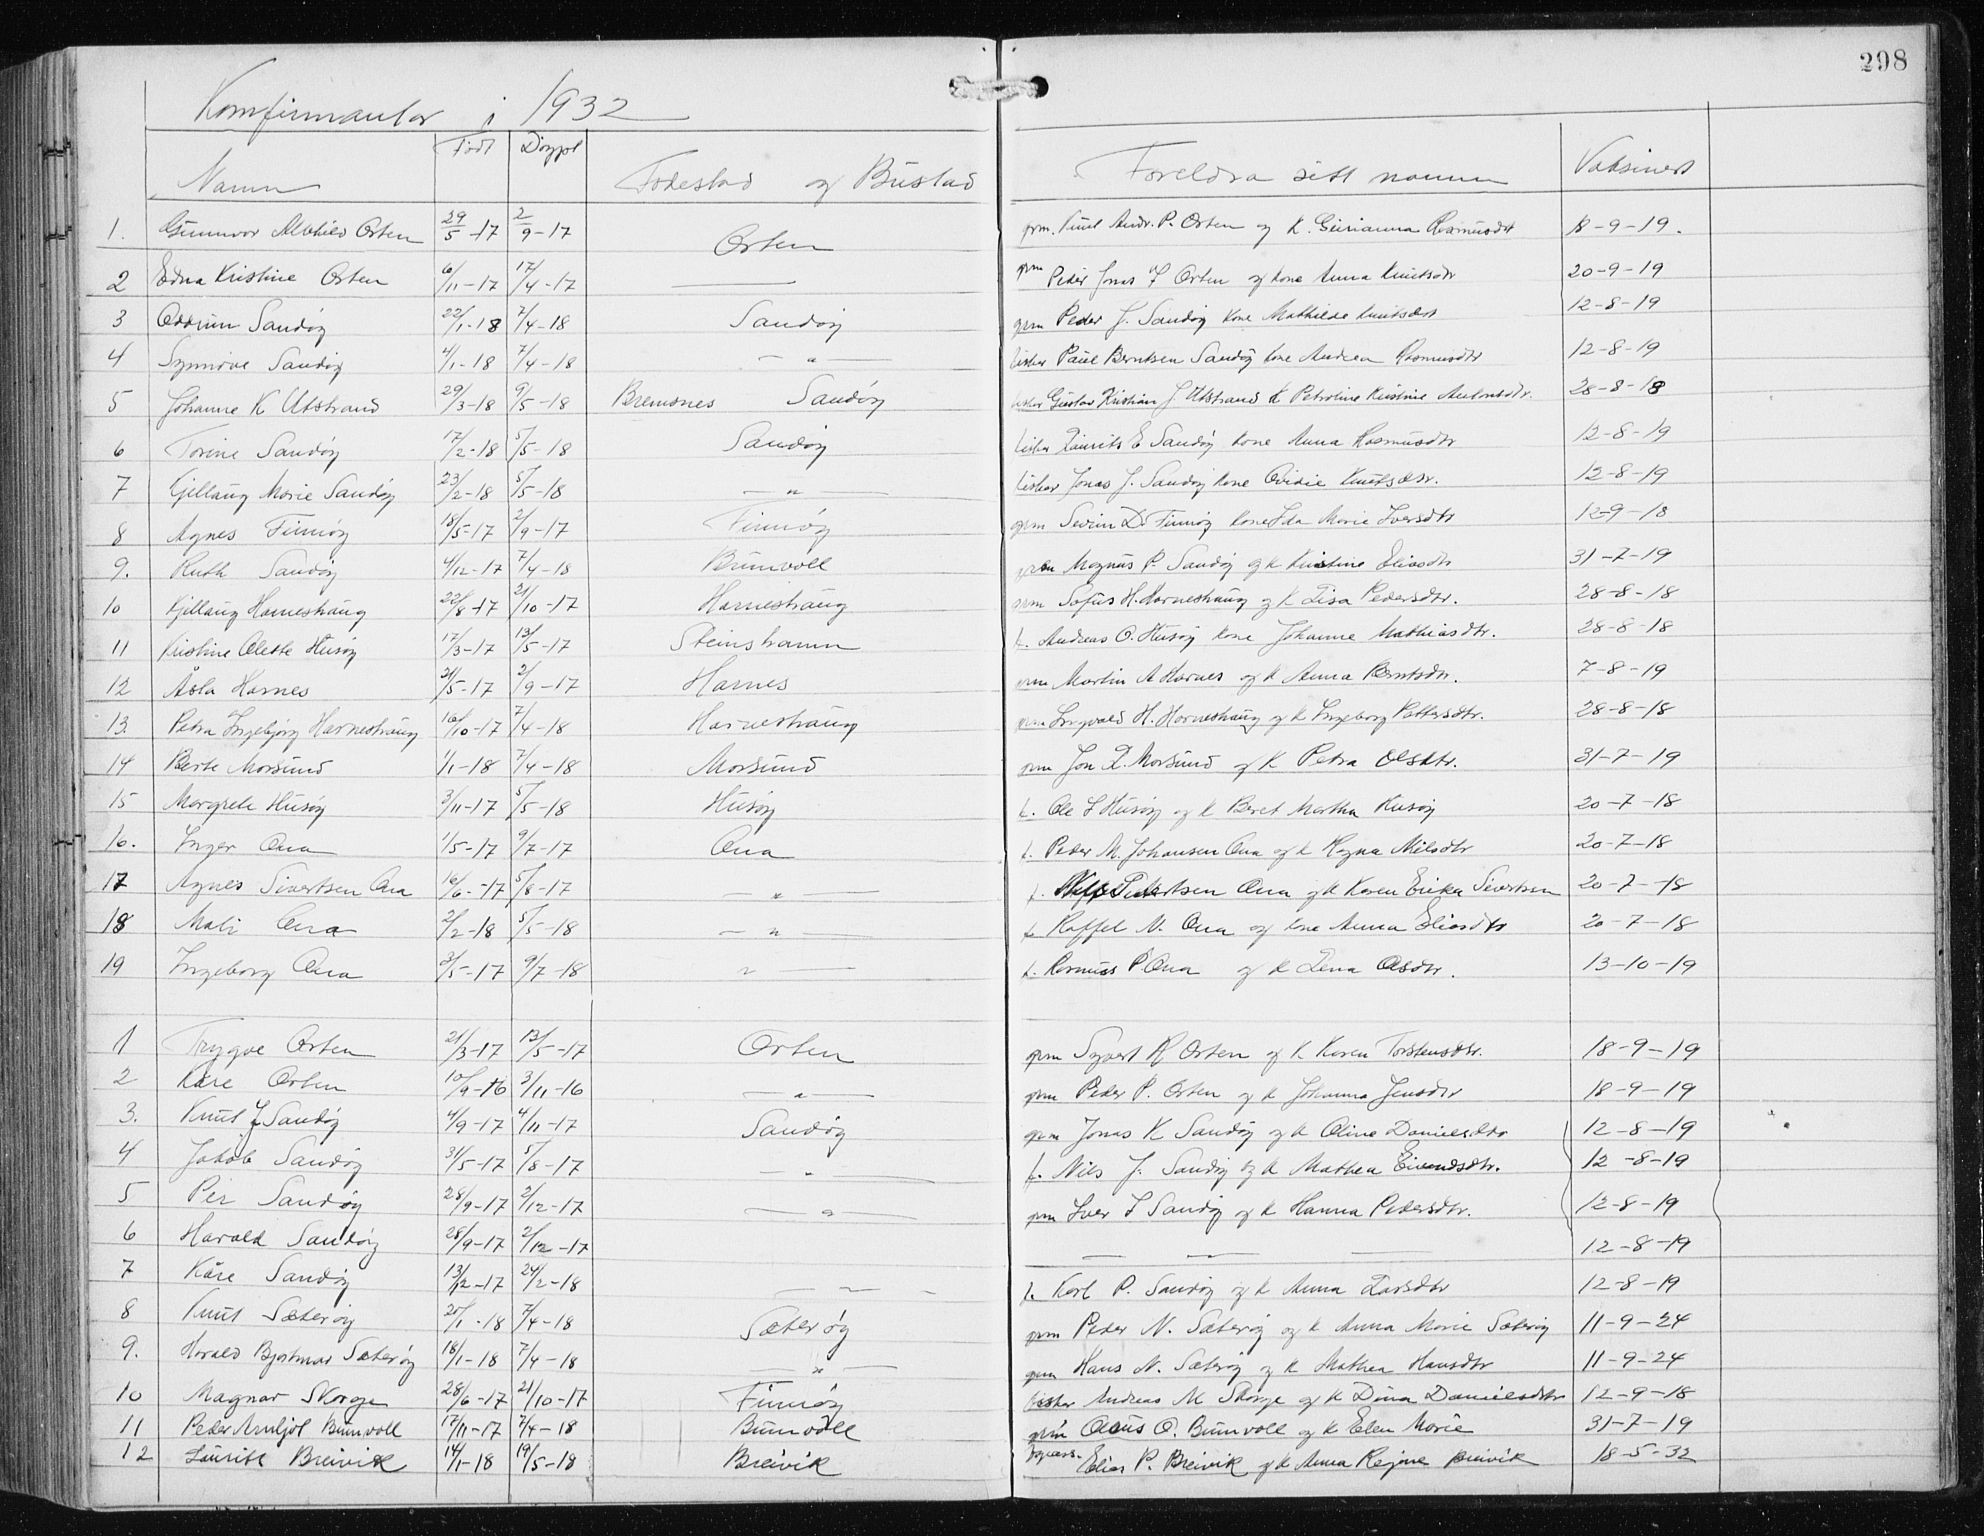 298
Konfirmantar i 1932
Namn Född Döypt Fødestad og Bustad Foreldra sitt namn Vaksinert
1. Gunnvor Alvhild Orten 29/5-17 2/9-17 Orten grm. Knut Andr. P. Orten og k. Gurianna Rasmusdt 18-9-19.
2 Edna Kristine Orten 6/11-17 17/4-17 — grm Peder Jonas Orten og kone Anna Knutsdtr 20-9-19
3 Oddrun Sandøy 22/1-18 7/4-18 Sandøy grm Peder J. Sandøy kone Mathilde Knutsdtr 12-8-19
4 Synnøve Sandøy 4/1-18 7/4-18 — " — fisker Paul Berntsen Sandøy kone Andrea Rasmusdtr 12-8-19
5 Johanne K Utstrand 29/3-18 9/5-18 Bremsnes Sandøy fisker Gustav Kristian J Utstrand k Petroline Kristine Antonsdtr. 28-8-18
6 Torine Sandøy 17/2-18 5/5-18 Sandøy fisker Laurits E Sandøy kone Anna Rasmusdtr 12-8-19
7 Gjellaug Marie Sandøy 23/2-18 5/5-18 — " — fisker Jonas J. Sandøy kone Ovidie Knutsdtr. 12-8-19
8 Agnes Finnøy 18/5-17 2/9-17 Finnøy grm Severin D. Finnøy kone Ida Marie Iversdtr 12-9-18
9. Ruth Sandøy 4/12-17 7/4-18 Bunnvoll grm Magnus P. Sandøy og k Kristine Eliasdtr 31-7-19
10 Kjellaug Harneshaug 22/8-17 21/10-17 Harneshaug grm Sofus H. Harneshaug og k Lisa Pedersdtr. 28-8-18
11 Kristine Olette Husøy 17/3-17 13/5-17 Steinshamn f. Andreas O. Husøy kone Johanne Mathiasdtr. 28-8-18
12 Åsla Harnes 21/5-17 2/9-17 Harnes grm Martin A Harnes og k Anna Berntsdtr. 7-8-19
13. Petra Ingebjørg Harneshaug 16/10-17 7/4-18 Harneshaug grm Ingvald H. Harneshaug og k Ingeborg Pettersdtr. 28-8-18
14 Berte Morsund 1/1-18 7/4-18 Morsund grm Jon L. Morsund og k Petra Olsdtr. 31-7-19
15 Margrete Husøy 3/11-17 5/5-18 Husøy f. Ole L Husøy og k Beret Martha Husøy 20-7-18
16. Inger Ona 1/5-17 9/7-17 Ona f. Peder M. Johansen Ona og k Hagna Nilsdtr 20-7-18
17 Agnes Sivertsen Ona 16/6-17 5/8-17 — " — f. Ona og k Karen Erika Sivertsen 20-7-18
18 Mali Ona 2/2-18 5/5-18 — " — f. Roffel N. Ona og kone Anna Eliasdtr 20-7-18
19 Ingeborg Ona 3/5-17 9/7-18 " — f. Rasmus P. Ona og k Lena Olsdtr. 13-10-19
1 Trygve Orten 21/3-17 13/5-17 Orten grm Syvert R Orten og k Karen Torstensdtr. 18-9-19
2 Kåre Orten 10/9-16 3/11-16 — " — grm Peder P. Orten og k Johanna Jensdtr 18-9-19
3. Knut J Sandøy 4/9-17 4/11-17 Sandøy grm Jonas K Sandøy og k Oline Danielsdtr 12-8-19
4 Jakob Sandøy 31/5-17 5/8-17 — " — f. Nils J. Sandøy og k Mathea Eivendsdtr. 12-8-19
5 Per Sandøy 28/9-17 2/12-17 — " — grm Iver I Sandøy og k Hanna Pedersdtr. 12-8-19
6 Harald Sandøy 28/9-17 2/12-17 — — — 12-8-19
7 Kåre Sandøy 13/12-17 24/2-18 — " — f. Karl P. Sandøy og k Anna Larsdtr 12-8-19
8 Knut Sæterøy 20/1-18 7/4-18 Sæterøy grm Peder N. Sæterøy og k Anna Marie Sæterøy 11-9-24
9. Harald Bjartmar Sæterøy 18/1-18 7/4-18 — " — grm Hans N. Sæterøy og k Mathea Hansdtr 11-9-24
10 Magnar Skorge 28/6-17 21/10-17 Finnøy fisker Andreas M Skorge og k Dina Danielsdtr 12-9-18
11 Peder Arnljot Bunnvoll 17/11-17 7/4-18 Bunnvoll grm Olaus O. Bunnvoll og k Elen Marie 31-7-19
12 Laurits Breivik 14/1-18 19/5-18 Breivik Elias P. Breivik og k Anna Regine Breivik 18-5-32